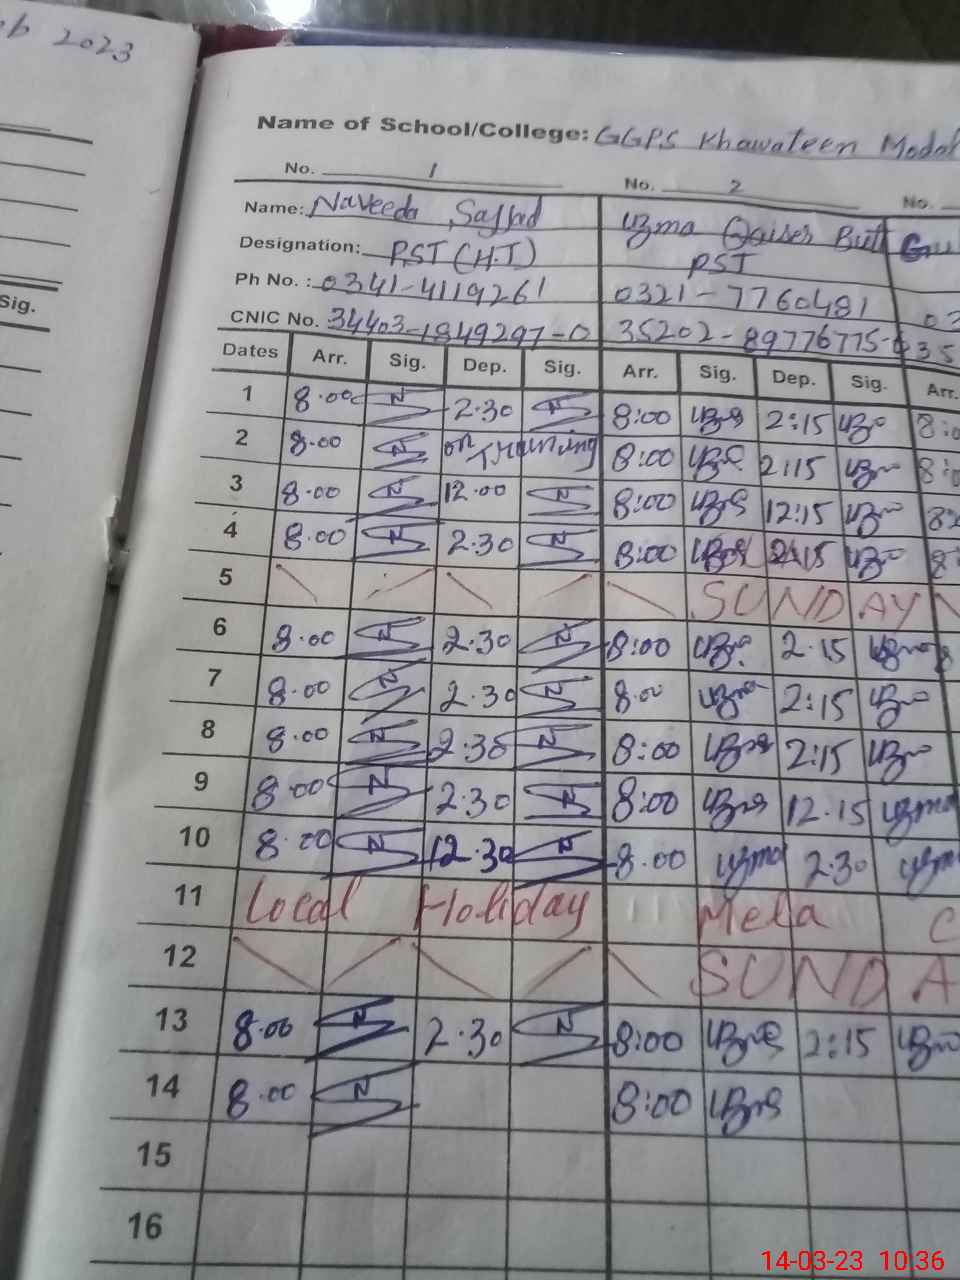 eb 2023
Sig.
Name of School/College: GGPS Khawateen Model
No. 1 No. 2 No.
Name: Naveeda Sajjad Uzma Qaiser Butt
Designation: PST (H.T) PST
Ph No. : 0341-4119261 0321-7760481 03
CNIC No. 34403-1849297-0 35202-89776775- 35
Dates Arr. Sig. Dep. Sig. Arr. Sig. Dep. Sig. Arr.
1 8.00 N 2.30 N 8:00 2:15 8:0
2 8.00 N on Training 8:00 2:15 8:0
3 8.00 N 12.00 N 8:00 12:15
4 8.00 N 2.30 N 8:00 2:15 8:
5 SUNDAY
6 8.00 N 2.30 N 8:00 2.15 Uzma 8
7 8.00 N 2.30 N 8.00 Uzma 2:15
8 8.00 N 2.30 N 8:00 2:15
9 8.00 N 2.30 N 8:00 12.15 Uzma
10 8.00 N 12.30 N 8.00 Uzma 2.30 Uzma
11 Local Holiday Mela C
12 SUNDA
13 8.00 N 2.30 N 8:00 2:15
14 8.00 N 8:00
15
16
14-03-23 10:36